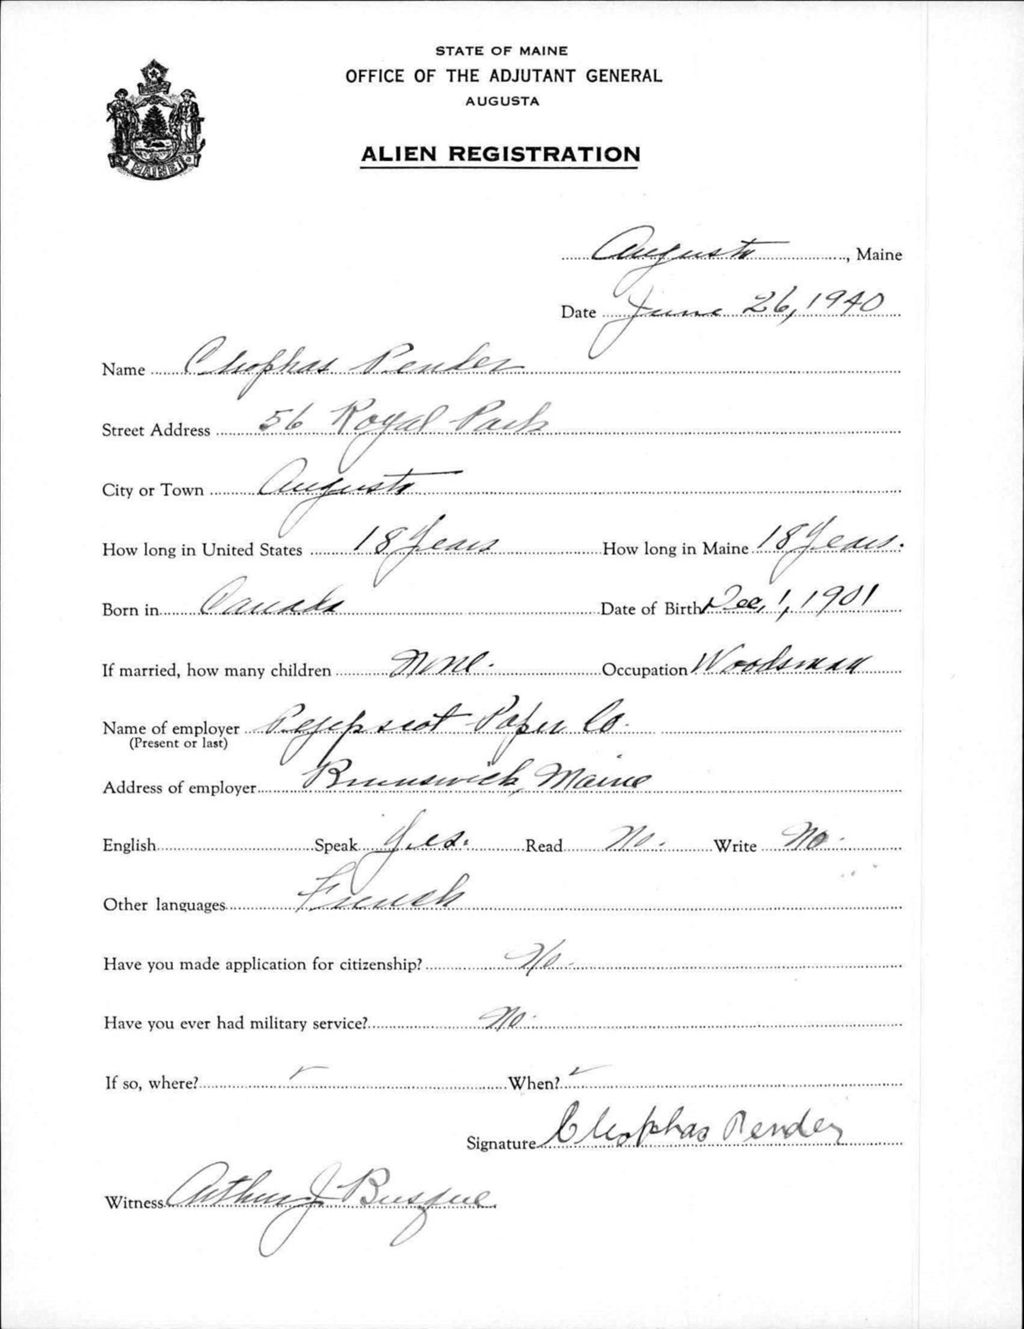 STATE OF MAINE
OFFICE OF THE ADJUTANT GENERAL
AUGUSTA
ALIEN REGISTRATION
MAINE
Augusta, Maine
Date June 26, 1940
Name Cleophas Render
Street Address 56 Royal Park
City or Town Augusta
How long in United States 18 Years How long in Maine 18 Years.
Born in Canada Date of Birth Dec, 1, 1901
If married, how many children None. Occupation Woodsman
Name of employer Pejepscot Paper Co.
(Present or last)
Address of employer Brunswick, Maine
English Speak Yes. Read No. Write No.
Other languages French
Have you made application for citizenship? No.
Have you ever had military service? No.
If so, where? When?
Signature Cleophas Render
Witness Arthur J Busque